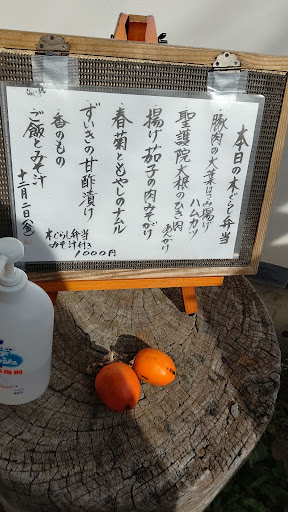 本日の木ぐらし弁当
豚肉の大葉はさみ揚げ
ハムカツ
聖護院大根のひき肉
あんかけ
揚げ茄子の肉みそがけ
春菊ともやしのナムル
ずいきの甘酢漬け
香のもの
ご飯とみそ汁
十二月二日(金)
木ぐらし弁当
みそ汁付き
1000円